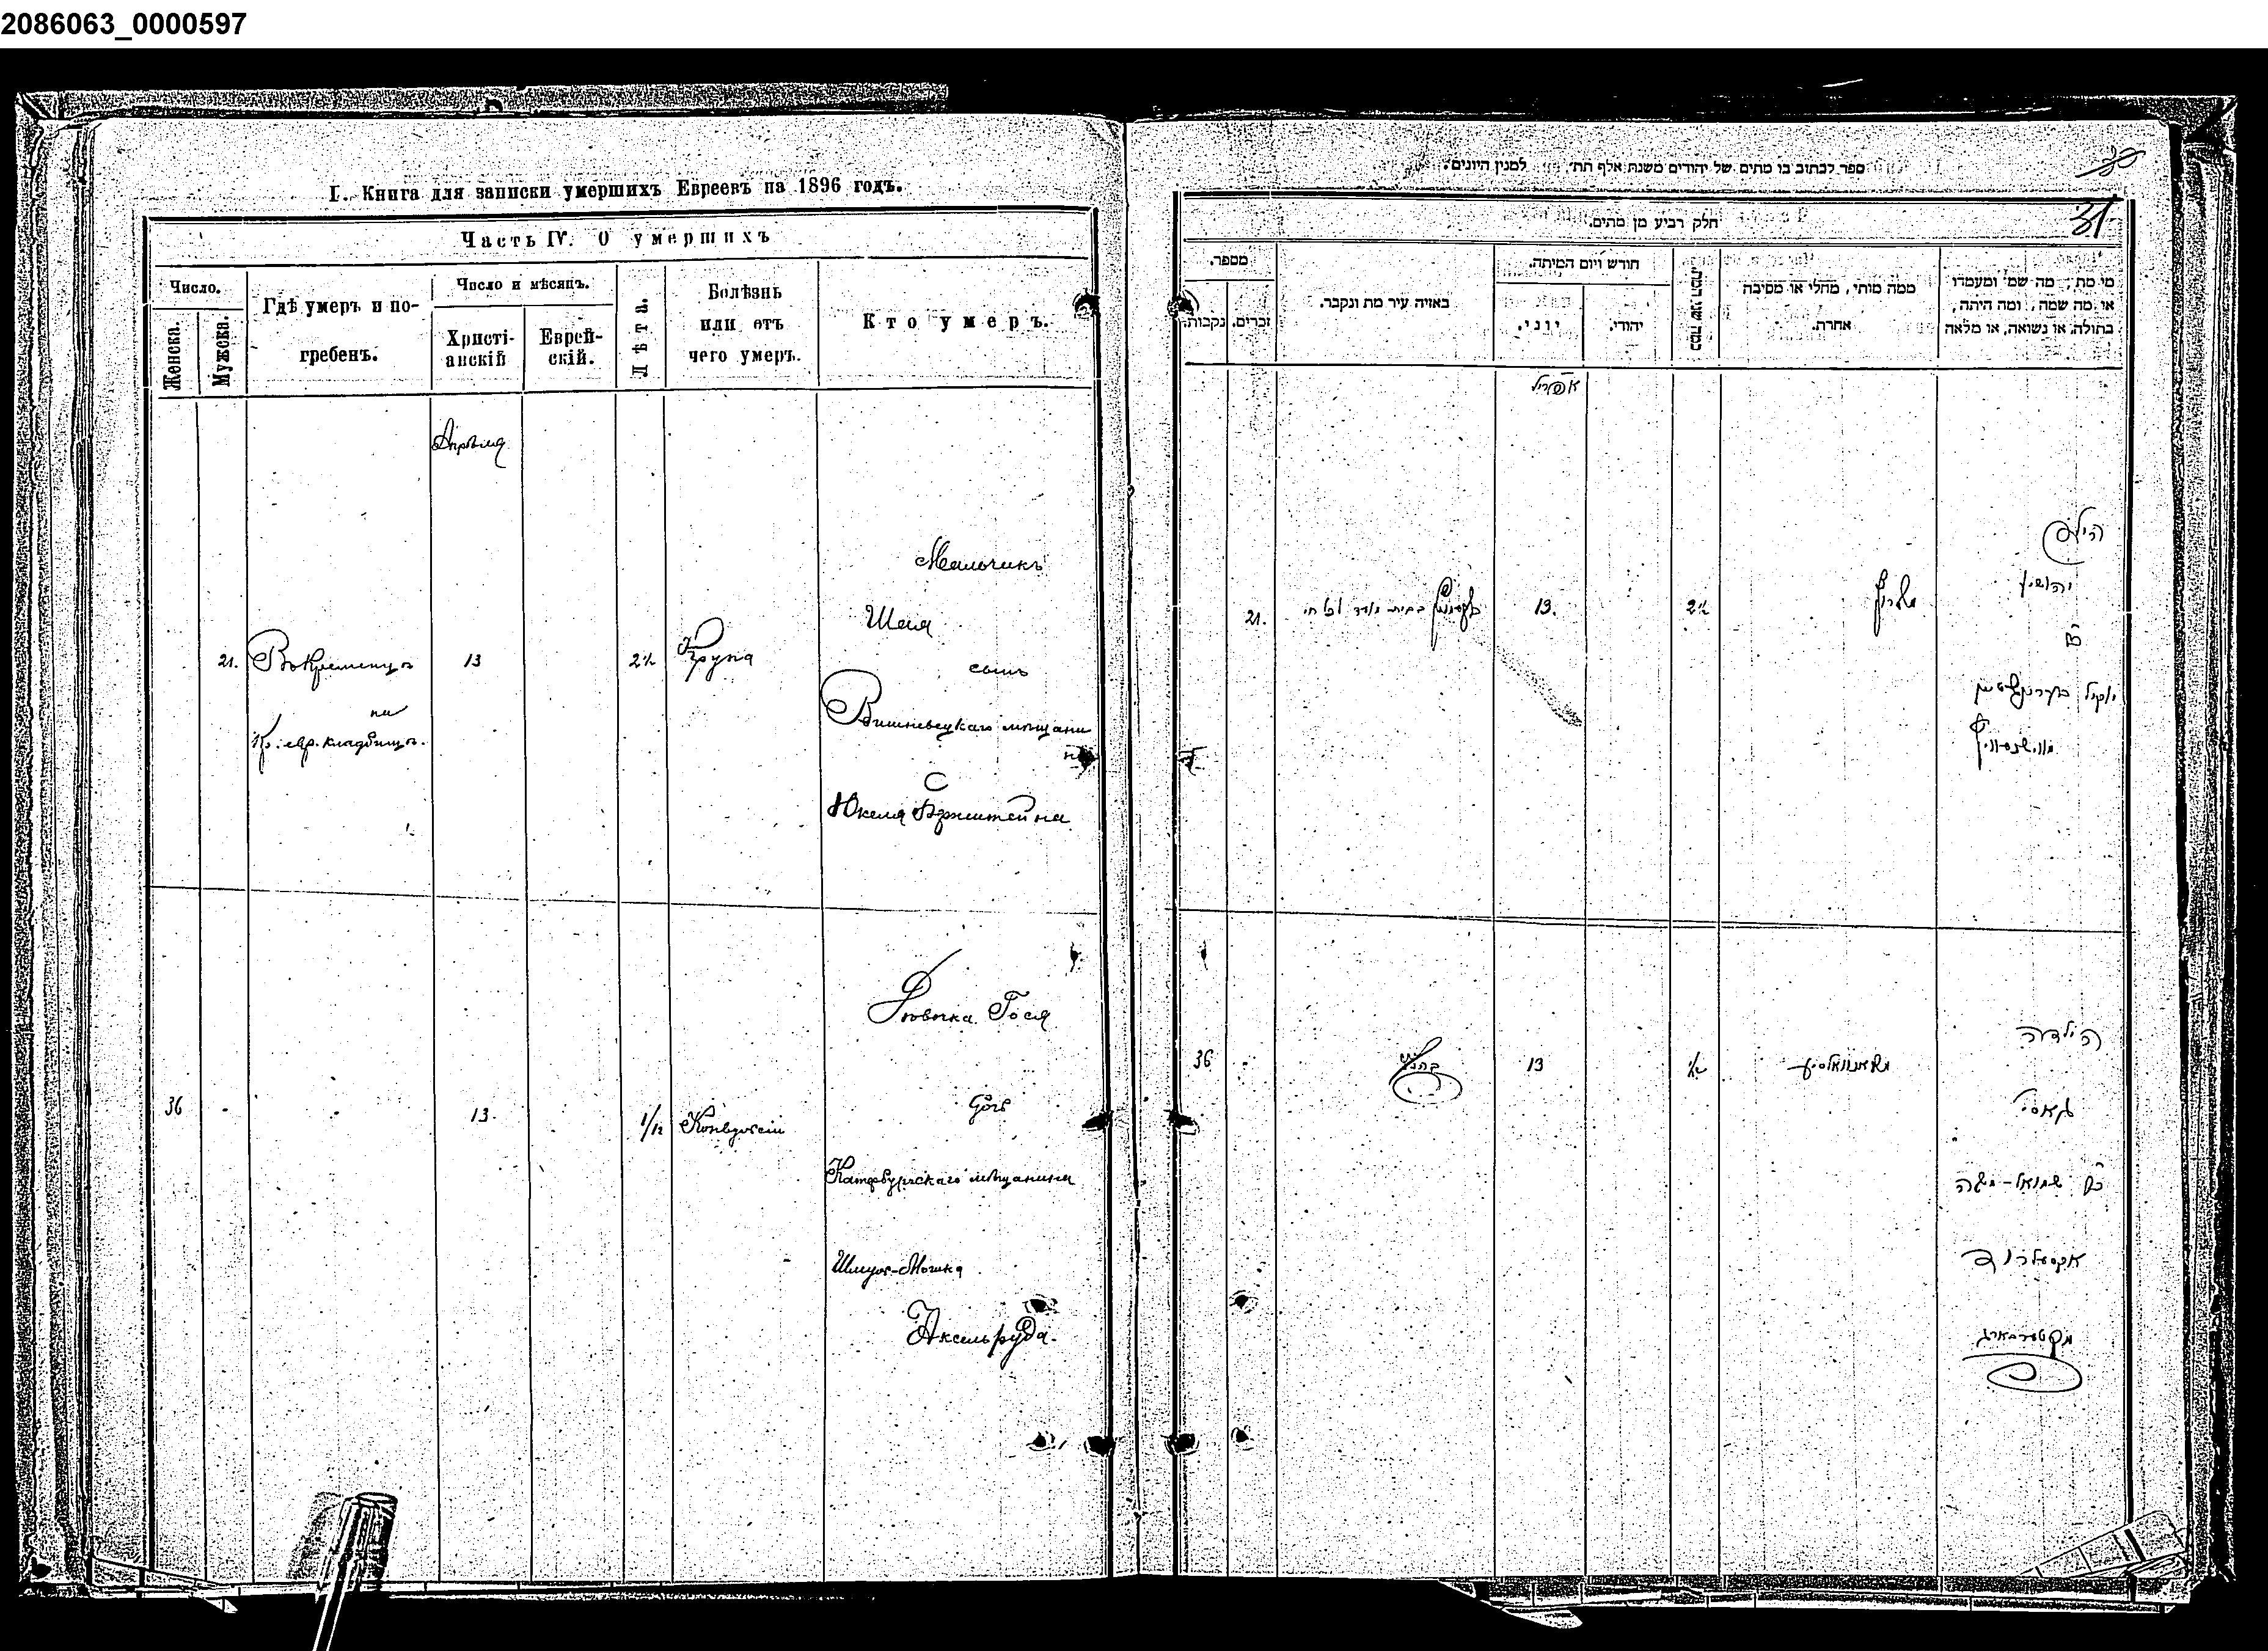 2086063_0000597
I. Книга для записки умершихъ Евреевъ на 1896 годъ.
Часть IV. О умершихъ
Число.
Женска.
Мужска.
Гдѣ умеръ и по-
гребенъ.
Число и мѣсяцъ.
Христі-
анскій
Еврей-
скій.
Лѣта.
Болѣзнь
или отъ
чего умеръ.
Кто умеръ.
Апрѣля
21.
Въ Кременцѣ
на
Кр. евр. кладбищѣ.
13
2½
Крупа
Мальчикъ
Шая
сынъ
Вишневецкаго мѣщани
на
Юкеля Бернштейна
36
13
1/12
Дѣвочка Гося
дочь
Катербургскаго мѣщанина
Шмуль-Мошка
Аксельруда.
ספר לכתוב בו מתים של יהודים משנת אלף תת״ למנין היונים.
30
31
חלק רביע מן מתים.
מספר.
נקבות.
זכרים.
באיזה עיר מת ונקבר.
חודש ויום המיתה.
יוני.
יהודי.
כמה שני המת.
ממה מותי, מחלי או מסיבה
אחרת.
מי מת, מה שמו ומעמדו
או מה שמה, ומה היתה,
בתולה, או נשואה, או מלאה
אפריל
21.
13.
2½
הילד
יהושע
בן
יאקיל בערנשטיין
36
13
הילדה
גאסי
בת שמואל-משה
אקסעלרוד